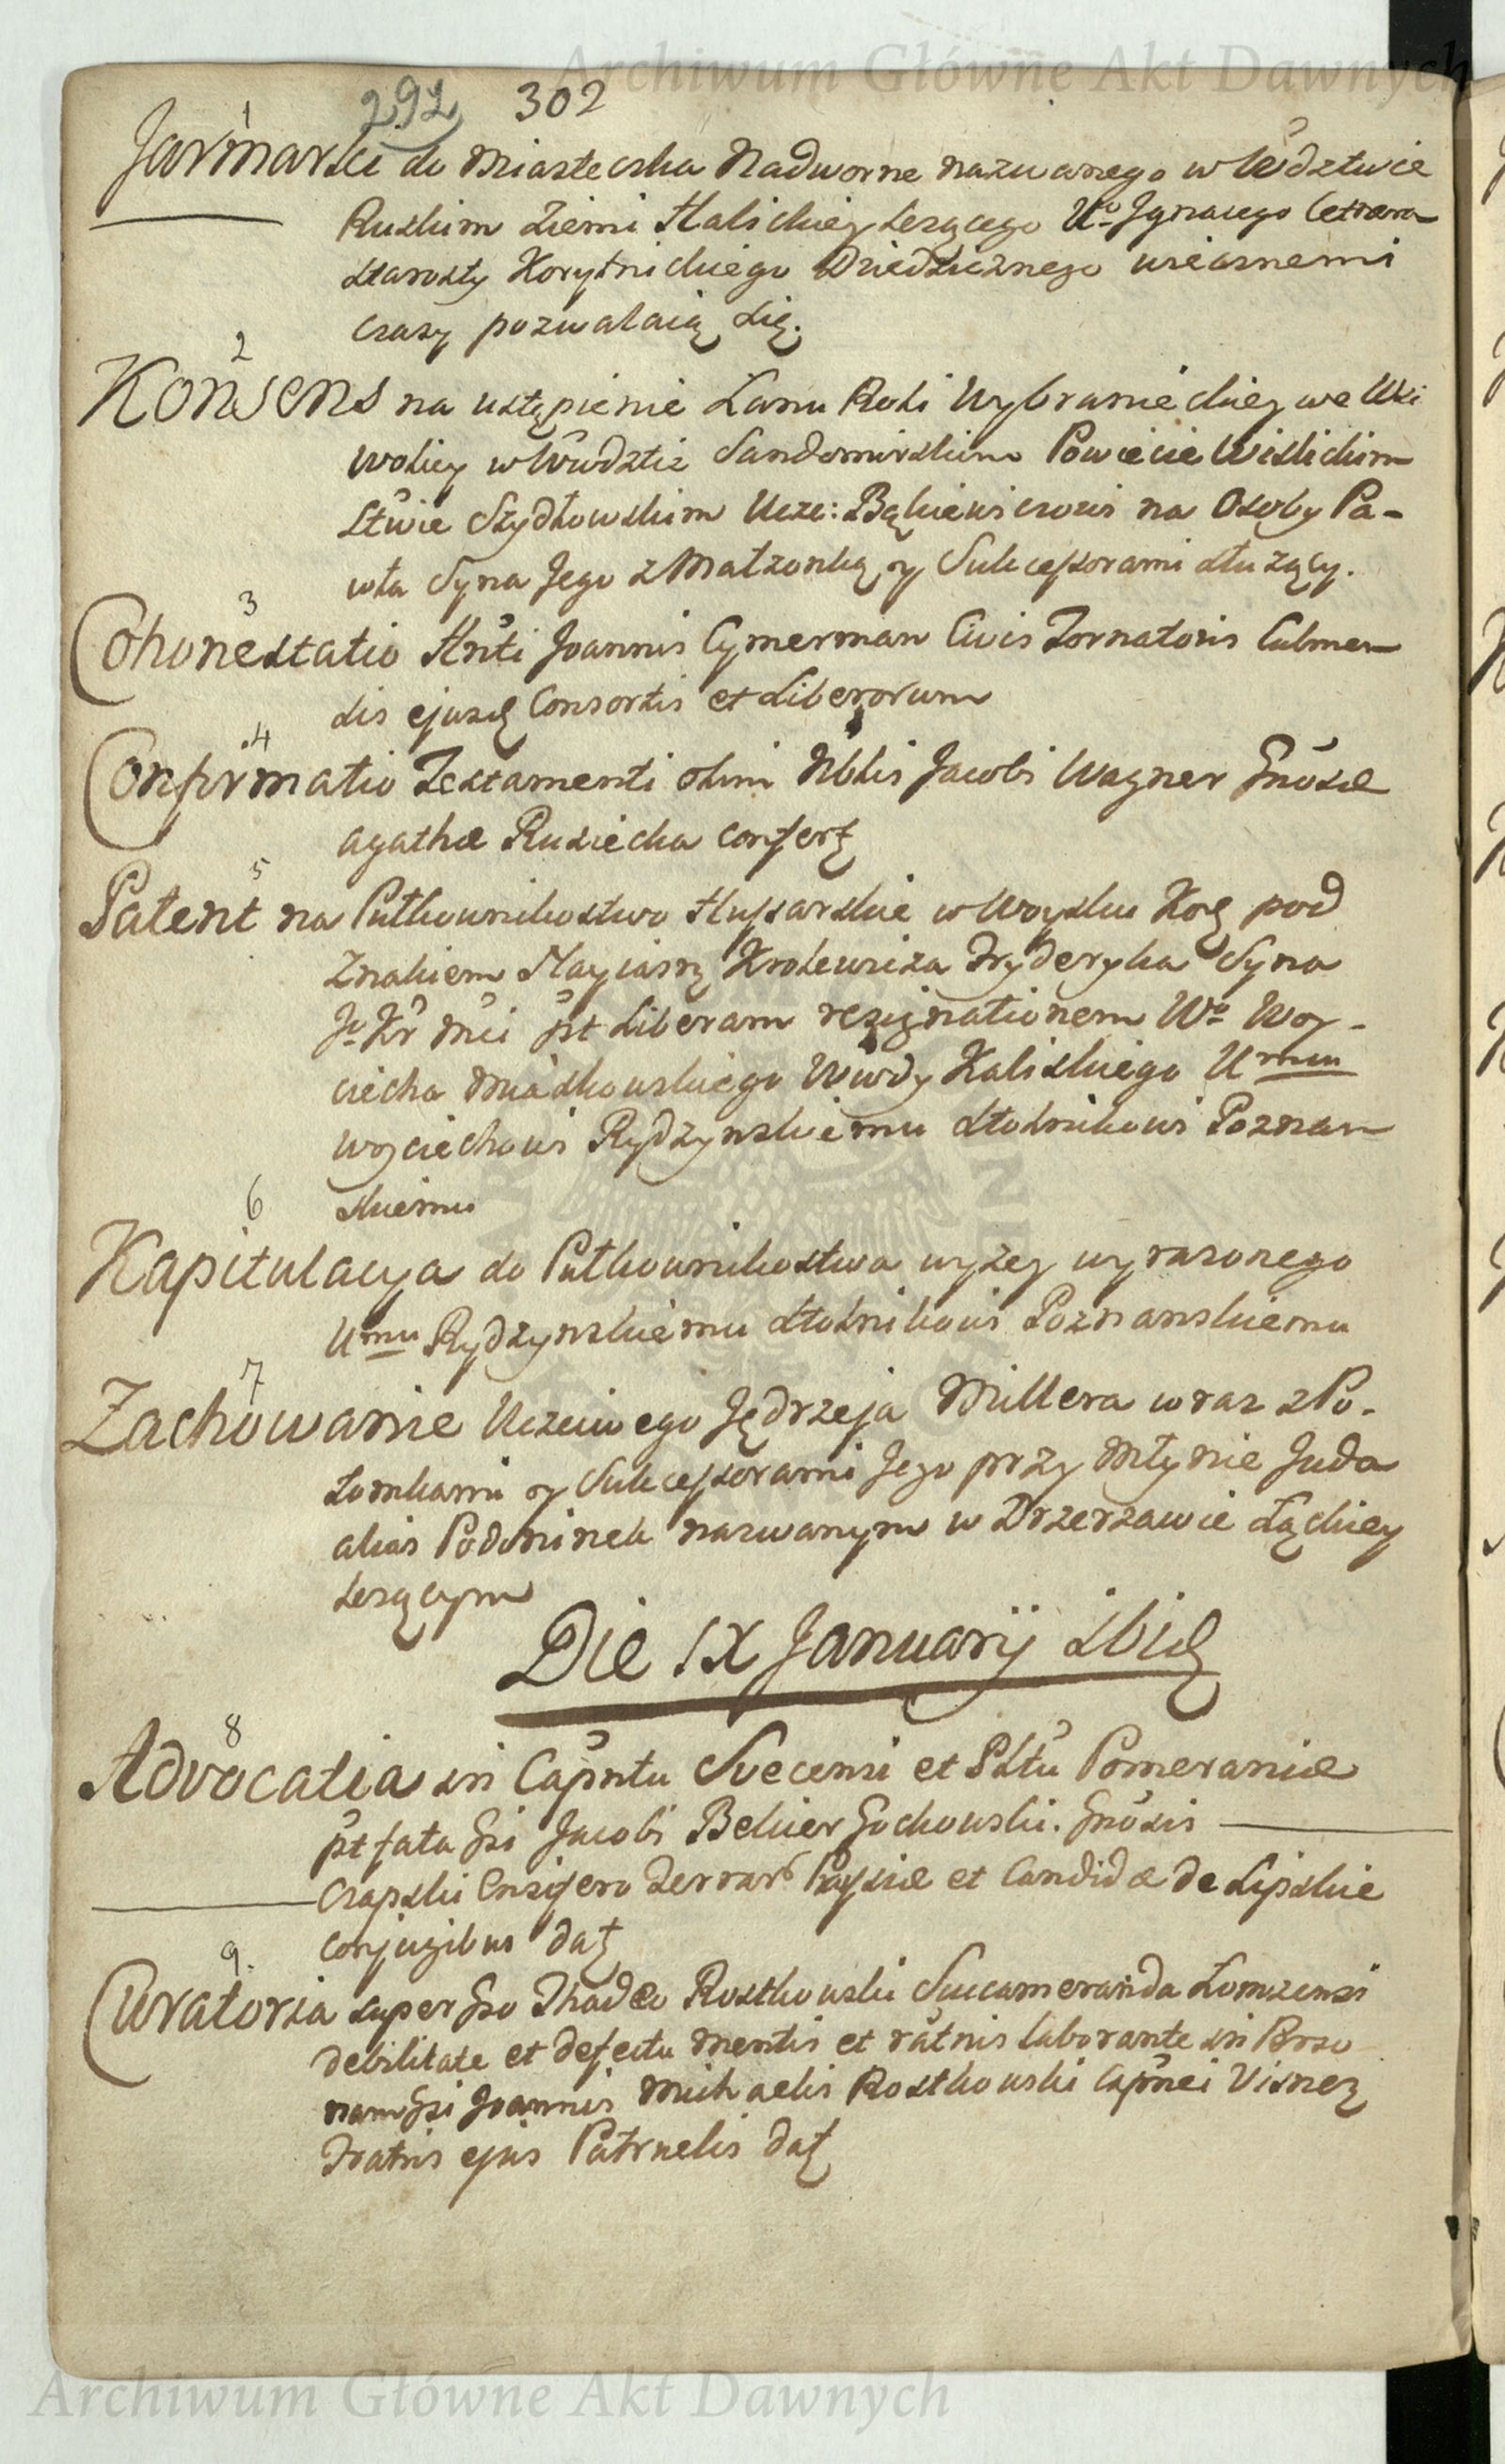 Archiwum Główne Akt Dawnych
292 302
1
Jarmarki do Miasteczka Nadworne nazwanego w Wdztwie
Ruskim Ziemi Halickiey Leżącego Uo Ignacego Cetnera
Starosty Korytnickiego Dziedzicznego wiecznemi
czasy pozwalaią się.
2
Konsens na ustąpienie Łanu Roli Wybranieckiey we Wsi
Woliey w Wwdztie Sandomirskim Powiecie Wislickim
Stwie Szydłowskim Ucze: Bąkiewiczowi na Osoby Pa-
wła Syna Jego z Małżonką y Sukcessorami służący.
3
Cohonestatio Hnti Joannis Cymerman Civis Tornatoris Culmen
sis ejusd Consortis et Liberorum
4
Confirmatio Testamenti olim Nblis Jacobi Wagner Gnosæ
Agathæ Rusiecka confert
5
Patent na Pułkownikostwo Hussarskie w Woysku Kor pod
Znakiem Nayiasn Krolewica Fryderyka Syna
Jo Kr Mci pt Liberam resignationem Wo Woy-
ciecha Miaskowskiego Wwdy Kaliskiego Umu
Woyciechowi Rydzynskiemu Stolnikowi Poznan
skiemu
6
Kapitulacya do Pułkownikostwa wyżey wyrazonego
Umu Rydzynskiemu Stolnikowi Poznanskiemu
7
Zachowanie Uczciwego Jędrzeja Millera wraz z Po-
tomkami y Sukcessorami Jego przy Młynie Juda
alias Podoninek nazwanym w Dzierzawie Łąckiey
Leżącym
Die IX Januarij ibid
8
Advocatia in Capntu Svecensi et Pltu Pomeraniæ
pt fata Gsi Jacobi Bekier Gochowski. Gnosis
Czapski Ensifero Terrar Prussiæ et Candidæ de Lipskie
Conjugibus dat
9.
Curatoria super Gso Thadeo Rostkowski Succamerarida Lomzensi
debilitate et defectu mentis et ratnis laborante in Perso
nam Gsi Joannis Michaelis Rostkowski Capnei Visnen
Fratris ejus Patruelis dat
Archiwum Główne Akt Dawnych